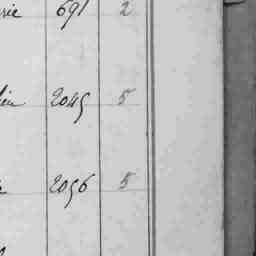 rie 691 2
lien 2045 5
2056 5